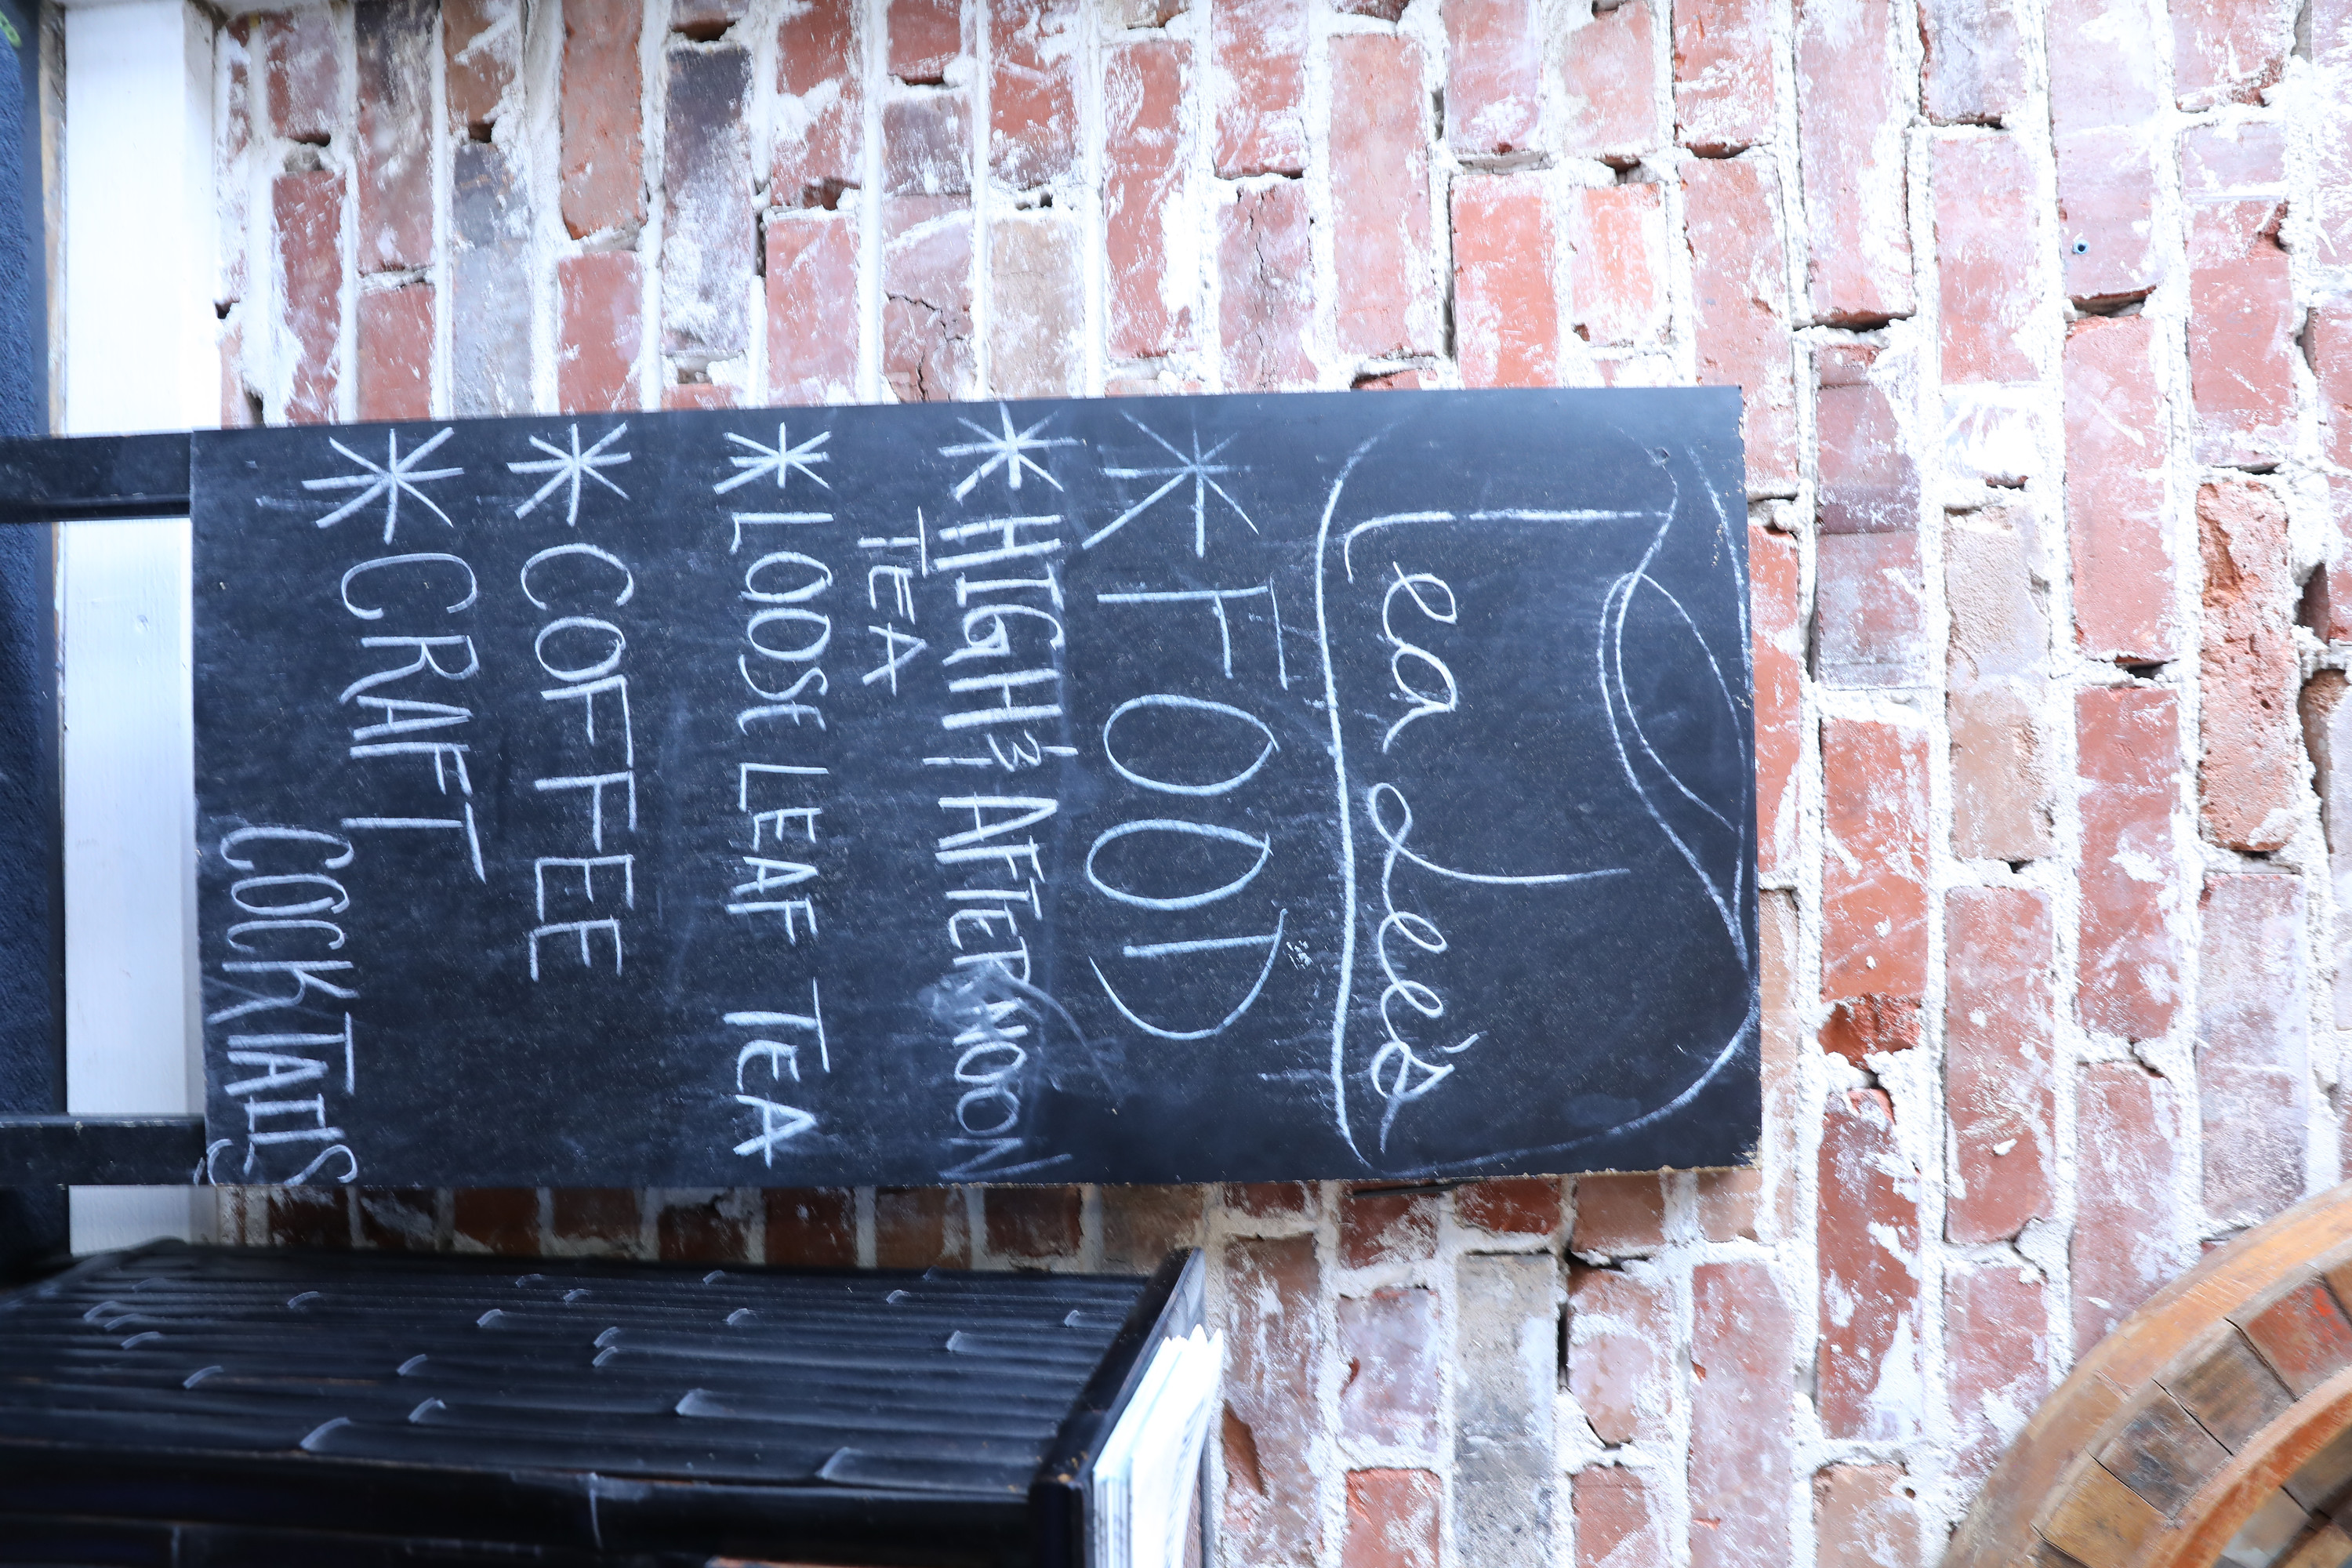 Tea dee's
* FOOD
* HIGH & AFTERNOON
TEA
* LOOSE LEAF TEA
* COFFEE
* CRAFT
COCKTAILS